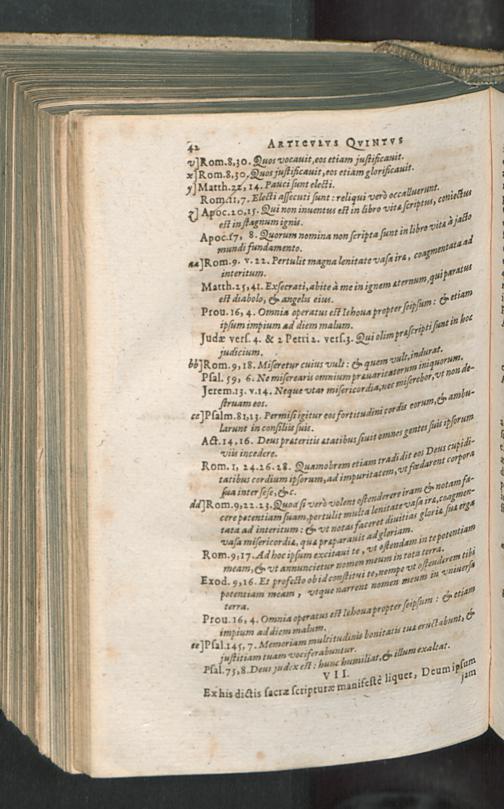 42 ARTICVLVS QVINTVS
v] Rom.8,30. Quos vocauit, eos etiam justificauit.
x] Rom.8,30. Quos justificauit, eos etiam glorificauit.
y] Matth.22, 14. Pauci sunt electi.
Rom.11,7. Electi assecuti sunt: reliqui verò occalluerunt.
z] Apoc.20,15. Qui non inuentus est in libro vitæ scriptus, coniectus
est in stagnum ignis.
Apoc.17, 8. Quorum nomina non scripta sunt in libro vitæ à jacto
mundi fundamento.
aa] Rom.9. v.22. Pertulit magna lenitate vasa iræ, coagmentata ad
interitum.
Matth.25,41. Exsecrati, abite à me in ignem æternum, qui paratus
est diabolo, & angelis eius.
Prou.16, 4. Omnia operatus est Iehoua propter seipsum: & etiam
ipsum impium ad diem malum.
Judæ vers. 4. & 2 Petri 2. vers.3. Qui olim præscripti sunt in hoc
judicium.
bb] Rom.9,18. Miseretur cuius vult: & quem vult, indurat.
Psal. 59, 6. Ne miserearis omnium præuaricatorum iniquorum.
Jerem.13. v.14. Neque vtar misericordia, nec miserebor, vt non de-
struam eos.
cc] Psalm.81,13. Permisi igitur eos fortitudini cordis eorum, & ambu-
larunt in consiliis suis.
Act.14,16. Deus præteritis ætatibus siuit omnes gentes suis ipsorum
viis incedere.
Rom.1, 24.26.28. Quamobrem etiam tradidit eos Deus cupidi-
tatibus cordium ipsorum, ad impuritatem, vt fœdarent corpora
sua inter sese, &c.
dd] Rom.9,22.23. Quod si verò volens ostendere iram & notam fa-
cere potentiam suam, pertulit multa lenitate vasa iræ, coagmen-
tata ad interitum: & vt notas faceret diuitias gloriæ suæ erga
vasa misericordiæ, quæ præparauit ad gloriam.
Rom.9,17. Ad hoc ipsum excitaui te, vt ostendam in te potentiam
meam, & vt annuncietur nomen meum in tota terra.
Exod. 9,16. Et profecto ob id constitui te, nempe vt ostenderem tibi
potentiam meam, vtque narrent nomen meum in vniuersa
terra.
Prou.16, 4. Omnia operatus est Iehoua propter seipsum: & etiam
impium ad diem malum.
ee] Psal.145, 7. Memoriam multitudinis bonitatis tuæ eructabunt, &
justitiam tuam vociferabuntur.
Psal.75,8. Deus judex est: hunc humiliat, & illum exaltat.
VII.
Ex his dictis sacræ scripturæ manifestè liquet, Deum ipsum
jam